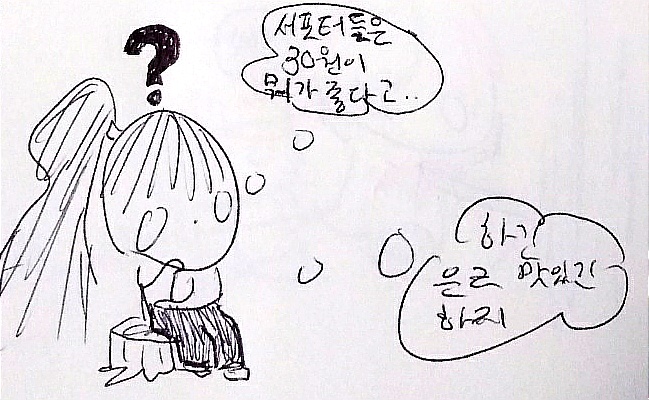 ?
서포터들은
30원이
뭐가 좋다고..
하긴
은근 맛있긴
하지